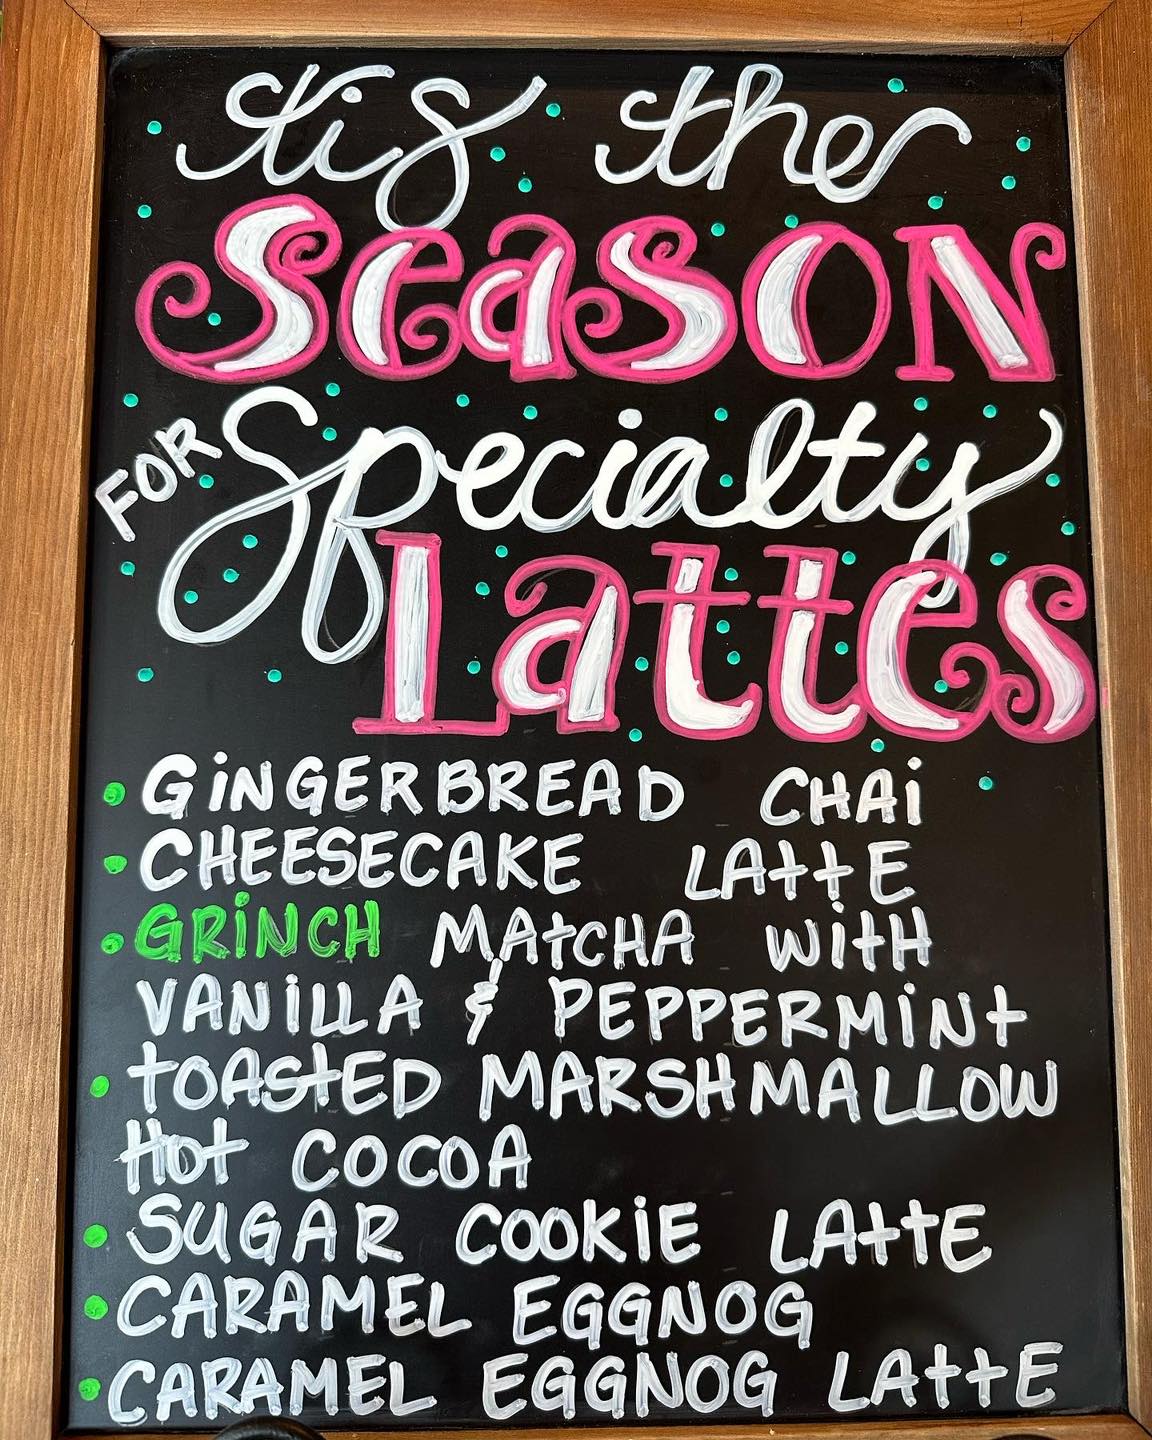 'tis the
SEASON
FOR Specialty
Lattes
• GiNGERBREAD CHAi
• CHEESECAKE LAttE
• GRiNCH MAtCHA WitH
VANiLLA & PEPPERMiNt
• tOAStED MARSHMALLOW
Hot COCOA
• SUGAR COOKiE LAttE
• CARAMEL EGGNOG
• CARAMEL EGGNOG LAttE